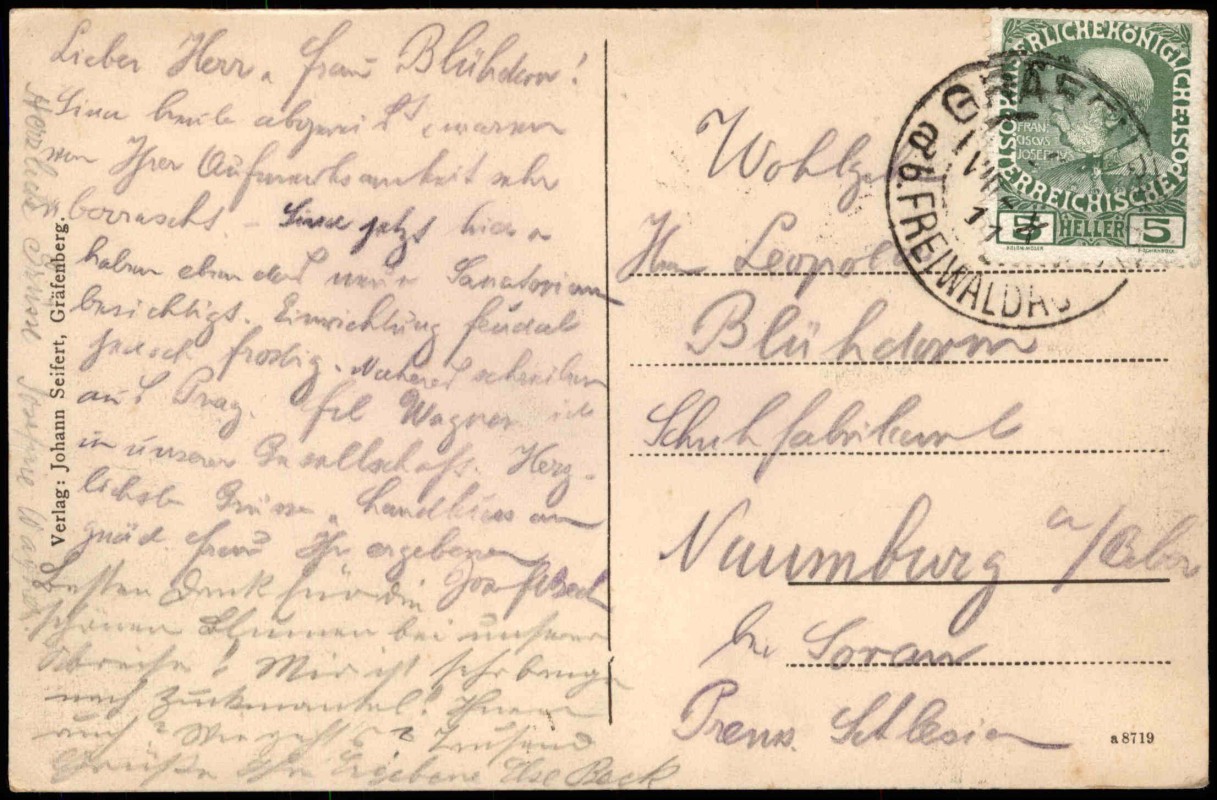 Lieber Herr u. Frau Blühdorn!
Sind heute abgereist, waren
von Ihrer Aufmerksamkeit sehr
überrascht – Sind jetzt hier u
haben eben das neue Sanatorium
besichtigt. Einrichtung feudal
jedoch frostig. Näheres schreiben
aus Prag. Frl Wagner ist
in unserer Gesellschaft. Herz-
lichste Grüsse u. Handkuss an
gnäd. Frau Ihr ergebener
Beck
Besten Dank für die
schönen Blumen bei unserer
Abreise! Mir ist sehr bange
nach Zuckmantel! Ihnen
auch? Wie geht's? Tausend
Grüße Ihre Ergebene Ilse Beck
Herzliche Grüße Wagner
Verlag: Johann Seifert, Gräfenberg.
KAISERLICHE KÖNIGLICHE
ÖSTERREICHISCHE POST
FRAN
CISCVS
JOSEPHVS
5 HELLER 5
GRÄFENBERG
b. FREIWALDAU
Wohlg
Herrn Leopold
Blühdorn
Schuhfabrikant
Naumburg a/Bober
bei Sorau
Preuss. Schlesien
a 8719